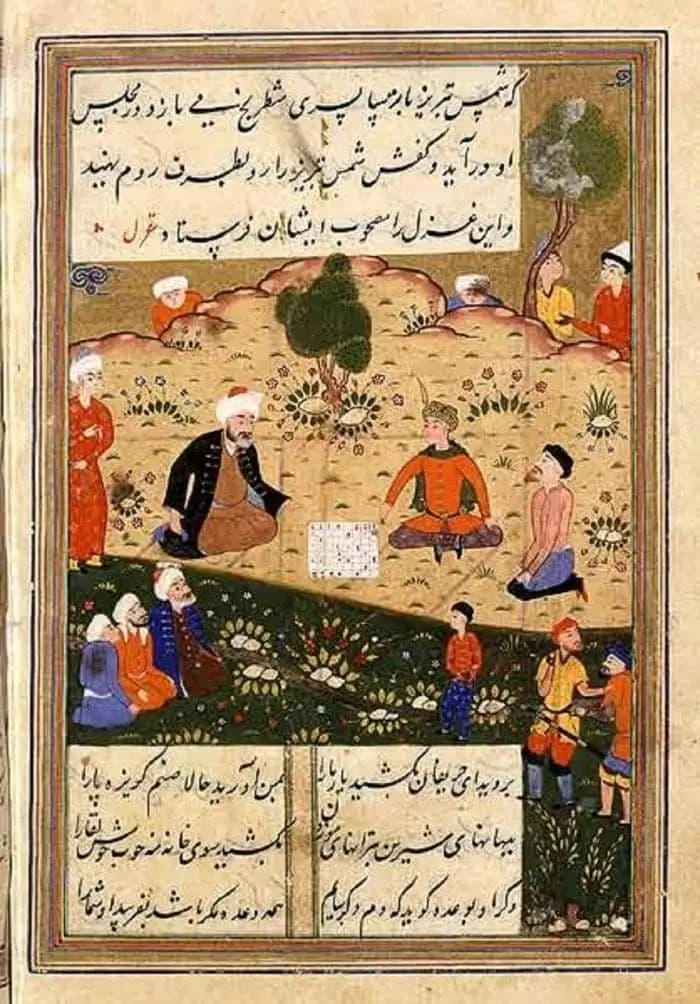 که شمس تبریز با پسری شطرنج می بازد در مجلس
او در آید و کفش شمس تبریز را رو بطرف روم نهید
و این غزل را مصحوب ایشان فرستاد غزل
بروید ای حریفان بکشید یار ما را بمن آورید حالا صنم گریزه پا را
ببهانهای شیرین بترانهای موزون بکشید سوی خانه مه خوب خوش لقا را
وگر او بوعده گوید که دم دگر بیایم همه وعده مکر باشد بفریبد او شما را